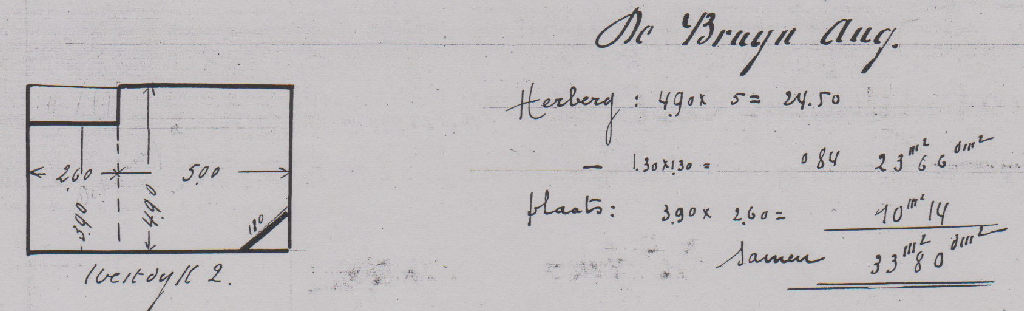 De Bruyn Aug.
Herberg: 4.90 x 5 = 24.50
- 1.30 x 1.30 = 0 84 23 m² 66 dm²
plaats: 3.90 x 2.60 = 10 m² 14
Samen 33 m² 80 dm²
2.60 5.00
3.90 4.90
Westdyk 2.